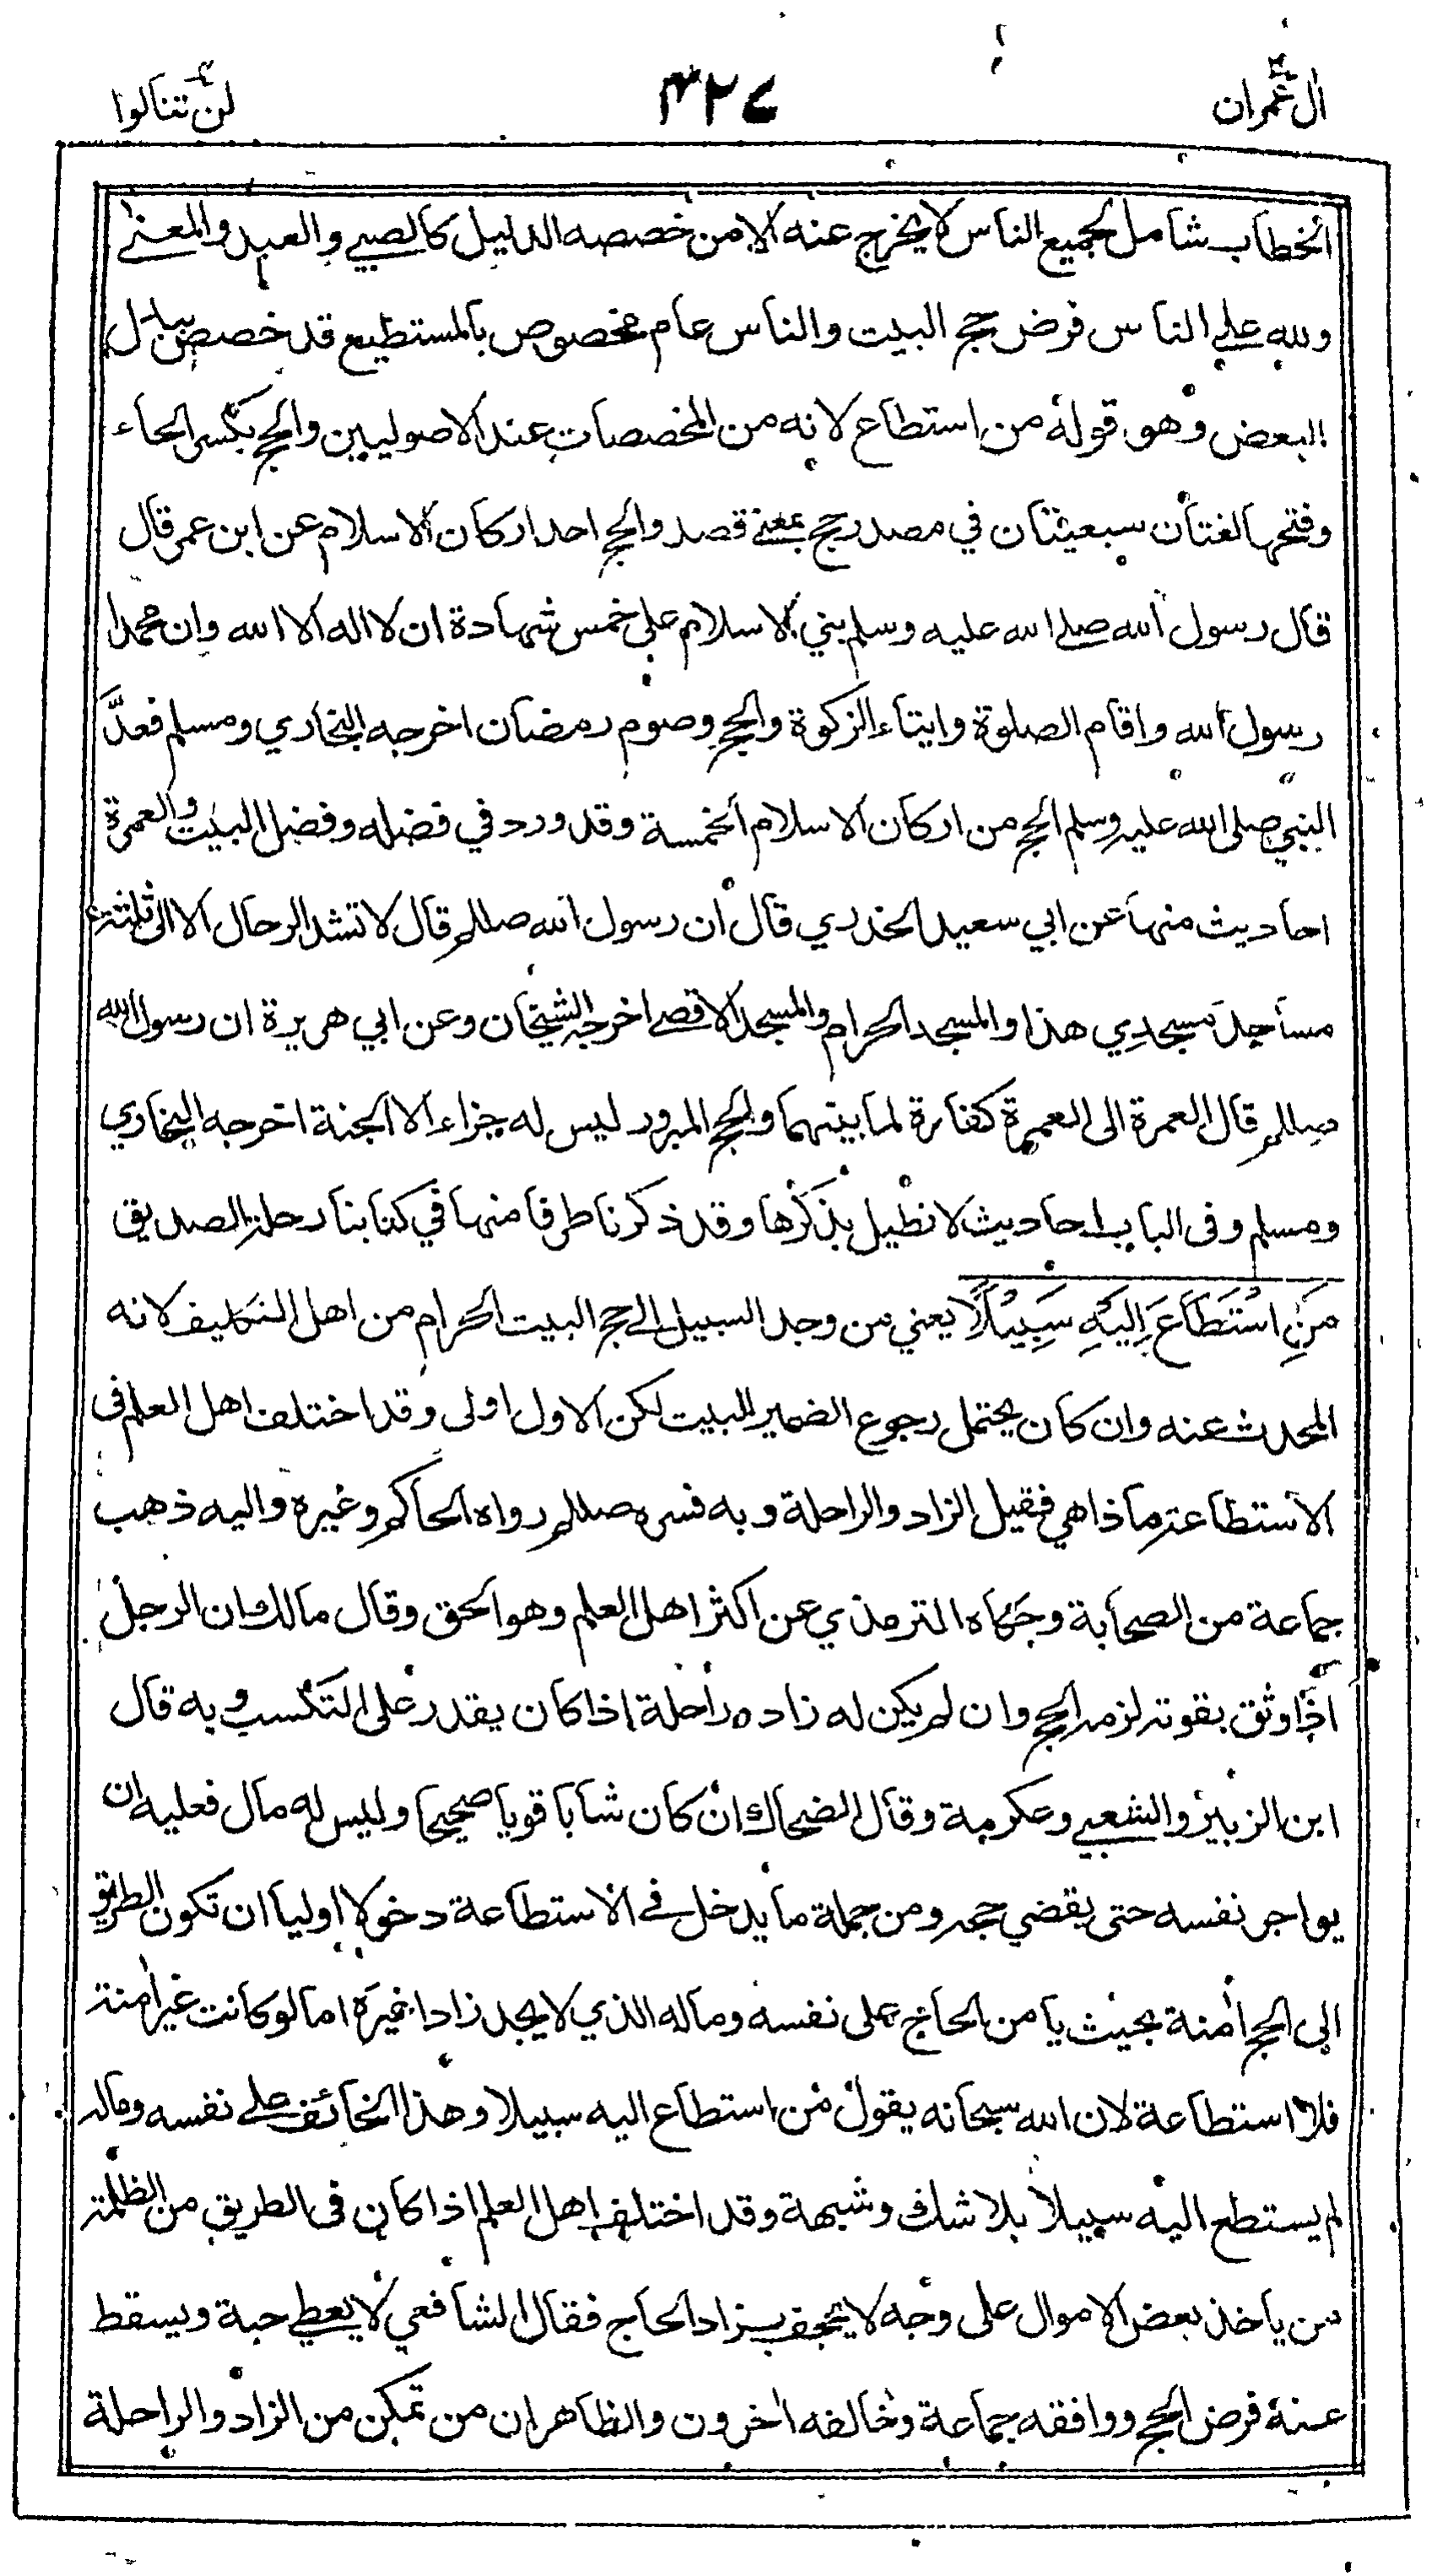 اٰل عمران
٤٢٧
لن تنالوا
الخطاب شامل لجميع الناس لا يخرج عنه الا من خصصه الدليل كالصبي والعبد والمعنى
ولله على الناس فرض حج البيت والناس عام مخصوص بالمستطيع قد خصص ببدل
البعض وهو قوله من استطاع لانه من المخصصات عند الاصوليين والحج بكسر الحاء
وفتحها لغتان سبعيتان في مصدر حج بمعنى قصد والحج احد اركان الاسلام عن ابن عمر قال
قال رسول الله صلى الله عليه وسلم بني الاسلام على خمس شهادة ان لا اله الا الله وان محمدا
رسول الله واقام الصلوة وايتاء الزكوة والحج وصوم رمضان اخرجه البخاري ومسلم فعدَّ
النبي صلى الله عليه وسلم الحج من اركان الاسلام الخمسة وقد ورد في فضله وفضل البيت والعمرة
احاديث منها عن ابي سعيد الخدري قال ان رسول الله صللم قال لا تشد الرحال الا الى ثلثة
مساجد مسجدي هذا والمسجد الحرام والمسجد الاقصى اخرجه الشيخان وعن ابي هريرة ان رسول الله
صللم قال العمرة الى العمرة كفارة لما بينهما والحج المبرور ليس له جزاء الا الجنة اخرجه البخاري
ومسلم وفى الباب احاديث لا نطيل بذكرها وقد ذكرنا طرفا منها في كتابنا رحلة الصديق
مَنِ اسْتَطَاعَ اِلَيْهِ سَبِيْلًا يعني من وجد السبيل الى حج البيت الحرام من اهل التكليف لانه
المحدث عنه وان كان يحتمل رجوع الضمير للبيت لكن الاول اولى وقد اختلف اهل العلم فى
الاستطاعة ماذا هي فقيل الزاد والراحلة وبه فسره صللم رواه الحاكم وغيره واليه ذهب
جماعة من الصحابة وحكاه الترمذي عن اكثر اهل العلم وهو الحق وقال مالك ان الرجل
اذا وثق بقوته لزمه الحج وان لم يكن له زاد وراحلة اذا كان يقدر على التكسب وبه قال
ابن الزبير والشعبي وعكرمة وقال الضحاك ان كان شابا قويا صحيحا وليس له مال فعليه ان
يواجر نفسه حتى يقضي حجه ومن جملة ما يدخل في الاستطاعة دخولا اوليا ان تكون الطريق
الى الحج اٰمنة بحيث يامن الحاج على نفسه وماله الذي لا يجد زادا غيره اما لو كانت غير اٰمنة
فلا استطاعة لان الله سبحانه يقول من استطاع اليه سبيلا وهذا الخائف على نفسه وماله
لم يستطع اليه سبيلا بلا شك وشبهة وقد اختلف اهل العلم اذا كان فى الطريق من الظلمة
من ياخذ بعض الاموال على وجه لا يجحف بزاد الحاج فقال الشافعي لا يعطي حبة ويسقط
عنه فرض الحج ووافقه جماعة وخالفه اٰخرون والظاهر ان من تمكن من الزاد والراحلة